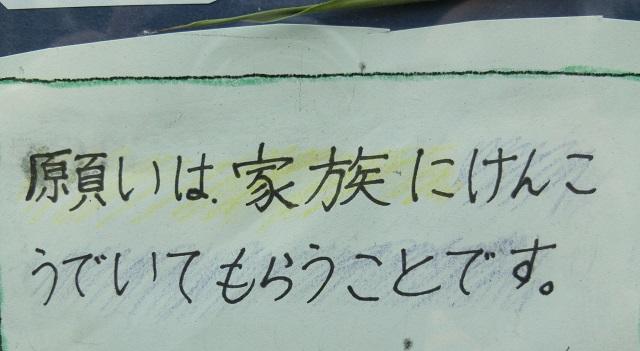 願いは、家族にけんこ
うでいてもらうことです。